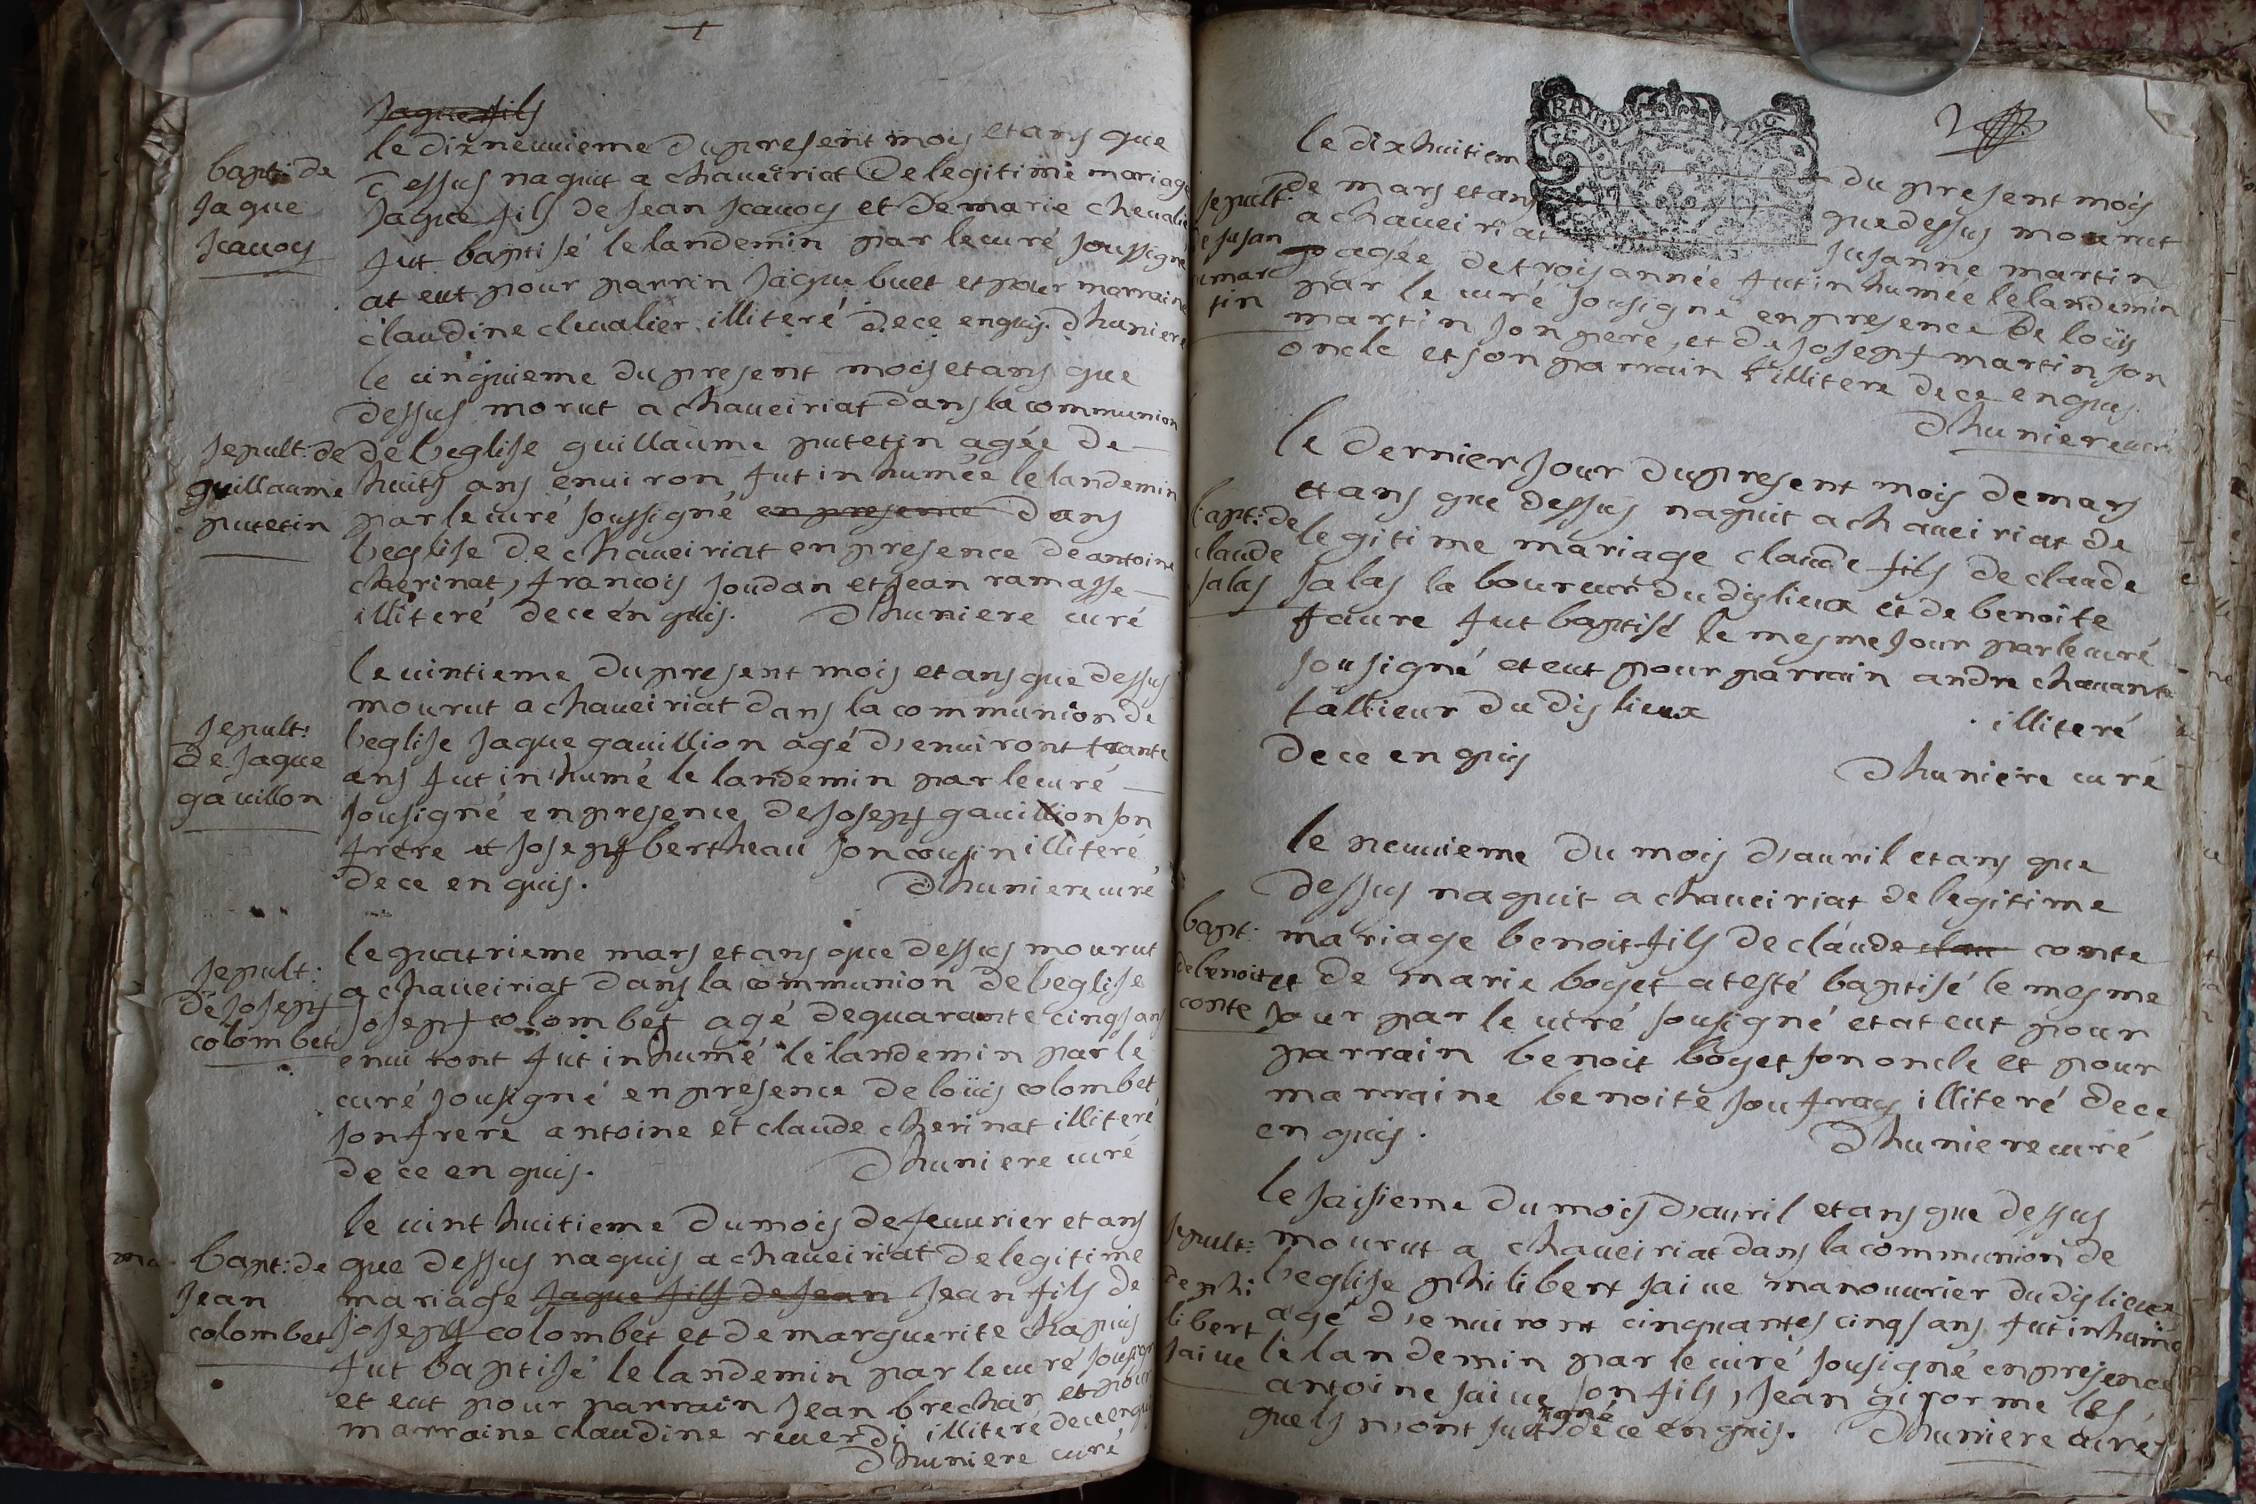 Jaque fils
le dizneuuieme du present mois et ans que
bapt: de
Jaque
Jcauoy
dessus naquit a chaueiriat De legitime mariage
Jaque fils de Jean Jcauoy et de marie cheualie
fut baptisé le landemin par le curé soussigné
at eut pour parrin Jaque buet et pour marraine
claudine cleualier illiteré de ce enquis. Dhuniere
le cinquieme du present mois et ans que
dessus morut a chaueiriat dans la communion
sepult: de
guillaume
putetin
de leglise guillaume putetin agée de
huits ans enuiron fut inhumée le landemin
par le curé soussigné en presence dans
leglise de chaueiriat en presence de antoine
cherinat, francois Joudan et Jean ramasse
illiteré de ce enquis. Dhuniere curé
le uintieme du present mois et ans que dessus
mourut a chaueiriat dans la communion de
sepult:
de Jaque
gauillon
leglise Jaque gauillion agé d'enuiront trante
ans fut inhumé le landemin par le curé
sousigné en presence de Joseph gauillion son
frere et Joseph bertheau son cousin illiteré
de ce enquis. Dhuniere curé
le quatrieme mars et ans que dessus mourut
sepult:
de Joseph
colombet
a chaueiriat dans la communion de leglise
Joseph colombet agé de quarante cinqs ans
enuiront fut inhumé le landemin par le
curé sousigné en presence de loüis colombet
son frere antoine et claude cherinat illiteré
de ce enquis. Dhuniere curé
le uint huitieme du mois de feuurier et ans
bapt: de
Jean
colombet
que dessus naquis a chaueiriat de legitime
mariage Jaque fils de Jean Jean fils de
Joseph colombet et de marguerite chapuis
fut baptisé le landemin par le curé
et eut pour parrain Jean brechar et pour
marraine claudine reuerdi illiteré de ce enquis
Dhuniere curé
2
GE
le dixhuitiem du present mois
sepult:
de susan
mar
tin
de mars et ans que dessus mourut
a chaueiriat susanne martin
agée de trois année fut inhumée le landemin
par le curé sousigné en presence de loüis
martin son pere, et de Joseph martin son
oncle et son parrain illitere de ce enquis.
Dhuniere curé
le dernier Jour du present mois de mars
et ans que dessus naquit a chaueiriat de
bapt: de
claude
salas
legitime mariage claude fils de claude
salas laboureur dudis lieux et de benoite
faure fut baptisé le mesme Jour par le curé
sousigné et eut pour parrain andre
tallieur dudis lieux illiteré
de ce enquis
Dhuniere curé
le neuuieme du mois d'auril et ans que
dessus naquit a chaueiriat de legitime
bapt:
de benoit
conte
mariage benoit fils de claude conte
et de marie boyet at esté baptisé le mesme
Jour par le curé sousigné et at eut pour
parrain benoit boyet son oncle et pour
marraine benoite Joufray illiteré de ce
enquis. Dhuniere curé
le saisieme du mois d'auril et ans que dessus
sepult:
de phi
libert
saiue
mourut a chaueiriat dans la communion de
leglise philibert saiue manouurier dudis lieux
agé d'enuiront cinquantes cinqs ans fut inhumé
le landemin par le curé sousigné en presence
antoine saiue son fils, Jean giforme les
quels n'ont signé de ce enquis. Dhuniere curé